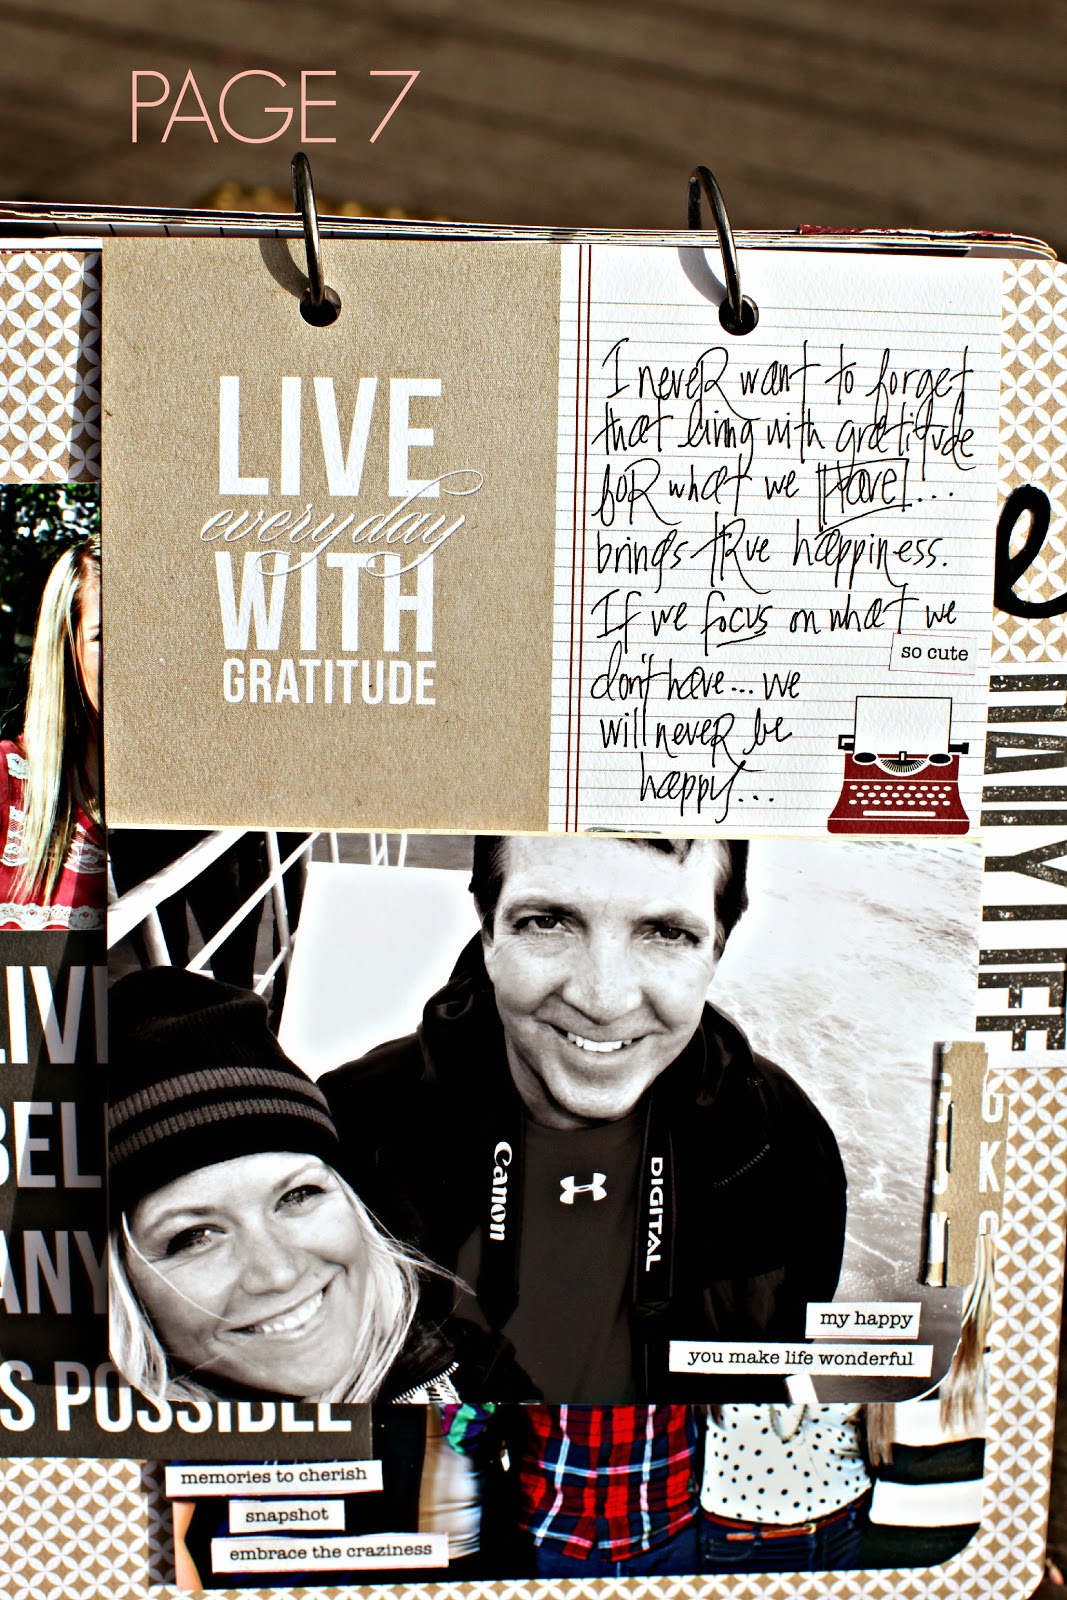 PAGE 7
LIVE
everyday
WITH
GRATITUDE
I never want to forget
that living with gratitude
for what we Have...
brings true happiness.
If we focus on what we
don't have... we
will never be
happy...
so cute
LIFE
Canon
DIGITAL
my happy
you make life wonderful
S POSSIBLE
memories to cherish
snapshot
embrace the craziness